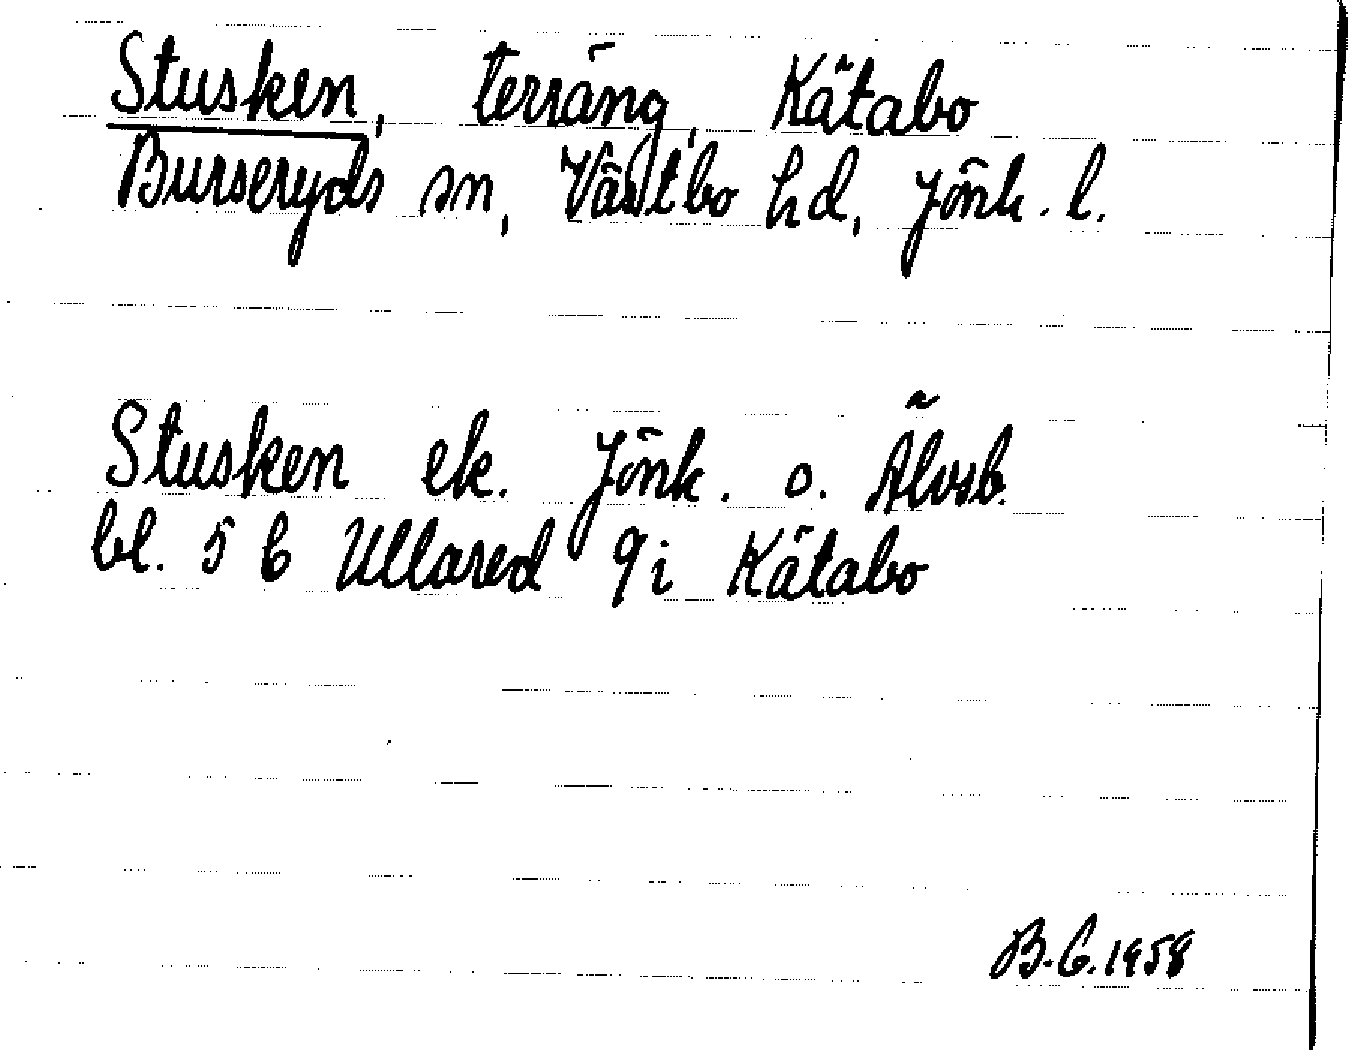 Stusken, terräng, Kätabo
Burseryds sn, Västbo hd, Jönk. l.
Stusken ek. Jönk. o. Älvsb.
bl. 5 6 Ullared 9 i Kätabo
B.G. 1958